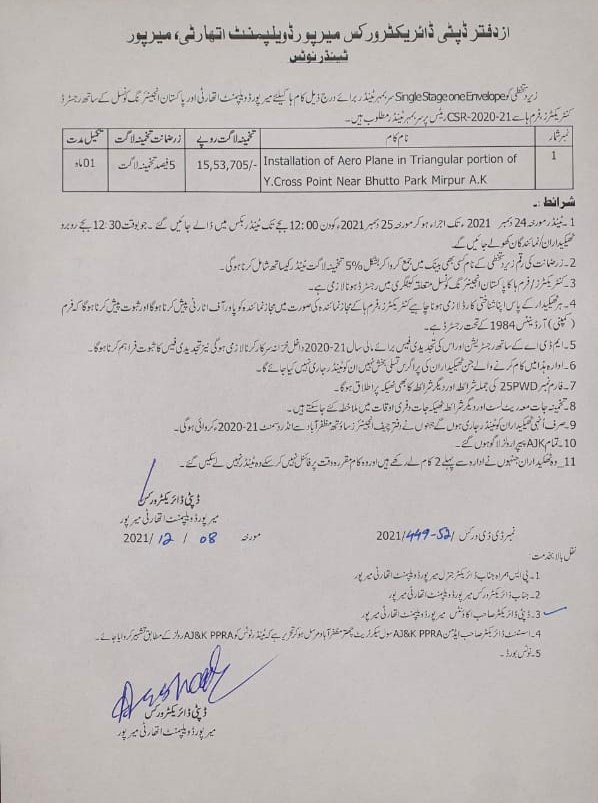 از دفتر ڈپٹی ڈائریکٹر ورکس میرپور ڈویلپمنٹ اتھارٹی، میرپور
ٹینڈر نوٹس
زیر دستخطی کو Single Stage one Envelope سربمہر ٹینڈر برائے درج ذیل کام ہا کیلئے میرپور ڈویلپمنٹ اتھارٹی اور پاکستان انجینئرنگ کونسل کے ساتھ رجسٹرڈ
کنٹریکٹرز، فرم ہا سے CSR-2020-21، ریٹس پر سربمہر ٹینڈر مطلوب ہیں۔
نمبر شمار نام کام تخمینہ لاگت روپے زر ضمانت تخمینہ لاگت تکمیل مدت
1 Installation of Aero Plane in Triangular portion of 15,53,705/- 5 فیصد تخمینہ لاگت 01 ماہ
Y.Cross Point Near Bhutto Park Mirpur A.K
شرائط :۔
1۔ ٹینڈر مورخہ 24 دسمبر 2021 ء تک اجراء ہو کر مورخہ 25 دسمبر 2021ء کو دن 12:00 بجے تک ٹینڈر بکس میں ڈالے جائیں گے ۔ جو بوقت 12:30 بجے روبرو
ٹھیکیداران/نمائندگان کھولے جائیں گے
2۔ زر ضمانت کی رقم زیر دستخطی کے نام کسی بھی بینک میں جمع کروا کر بشکل 5% تخمینہ لاگت ٹینڈر کیساتھ شامل کرنا ہوگی۔
3۔ کنٹریکٹرز/فرم ہا کا پاکستان انجینئرنگ کونسل متعلقہ کیٹگری میں رجسٹرڈ ہونا لازمی ہے۔
4۔ ہر ٹھیکیدار کے پاس اپنا شناختی کارڈ لازمی ہونا چاہیے کنٹریکٹرز، فرم ہا کے مجاز نمائندہ کی صورت میں مجاز نمائندہ کو پاور آف اٹارنی پیش کرنا ہوگا اور ثبوت پیش کرنا ہوگا کہ فرم
(کمپنی) آرڈیننس 1984 کے تحت رجسٹرڈ ہے۔
5۔ ایم ڈی اے کے ساتھ رجسٹریشن اور اس کی تجدیدی فیس برائے مالی سال 2020-21 داخل خزانہ سرکار کرنا لازمی ہوگی نیز تجدیدی فیس کا ثبوت فراہم کرنا ہوگا۔
6۔ ادارہ ہذا میں کام کرنے والے جن ٹھیکیداران کی پراگرس تسلی بخش نہیں ان کو ٹینڈر جاری نہیں کیا جائے گا۔
7۔ فارم نمبر 25PWD کی جملہ شرائط اور دیگر شرائط کا بھی ٹھیکہ پر اطلاق ہوگا۔
8۔ تخمینہ جات معہ ریٹ لسٹ اور دیگر شرائط ٹھیکہ جات دفتری اوقات میں ملاحظہ کئے جاسکتے ہیں۔
9۔ صرف اُنہی ٹھیکیداران کو ٹینڈر جاری ہوں گے جنہوں نے دفتر چیف انجینئرز ساؤتھ مظفرآباد سے انڈورسمنٹ 2020-21ء کروائی ہوگی۔
10۔ تمام AJK پیپرا رولز لاگو ہوں گے۔
11۔ وہ ٹھیکیداران جنہوں نے ادارہ سے پہلے 2 کام لے رکھے ہیں اور وہ کام مقررہ وقت پر فائنل نہیں کر سکے وہ ٹینڈر نہیں لے سکیں گے۔
ڈپٹی ڈائریکٹر ورکس
میرپور ڈویلپمنٹ اتھارٹی میرپور
نمبر ڈی ڈی ورکس /449-53/2021 مورخہ 08/12/2021
نقل بالا بخدمت
1۔ پی ایس ہمراہ جناب ڈائریکٹر جنرل میرپور ڈویلپمنٹ اتھارٹی میرپور
2۔ جناب ڈائریکٹر ورکس میرپور ڈویلپمنٹ اتھارٹی میرپور
3۔ ڈپٹی ڈائریکٹر صاحب اکاؤنٹس میرپور ڈویلپمنٹ اتھارٹی میرپور
4۔ اسسٹنٹ ڈائریکٹر صاحب ایڈمن AJ&K PPRA سول سیکرٹریٹ چھتر مظفرآباد مرسل ہو کر تحریر ہے کہ ٹینڈر نوٹس کو AJ&K PPRA رولز کے مطابق تشہیر کروایا جائے۔
5۔ نوٹس بورڈ۔
ڈپٹی ڈائریکٹر ورکس
میرپور ڈویلپمنٹ اتھارٹی میرپور